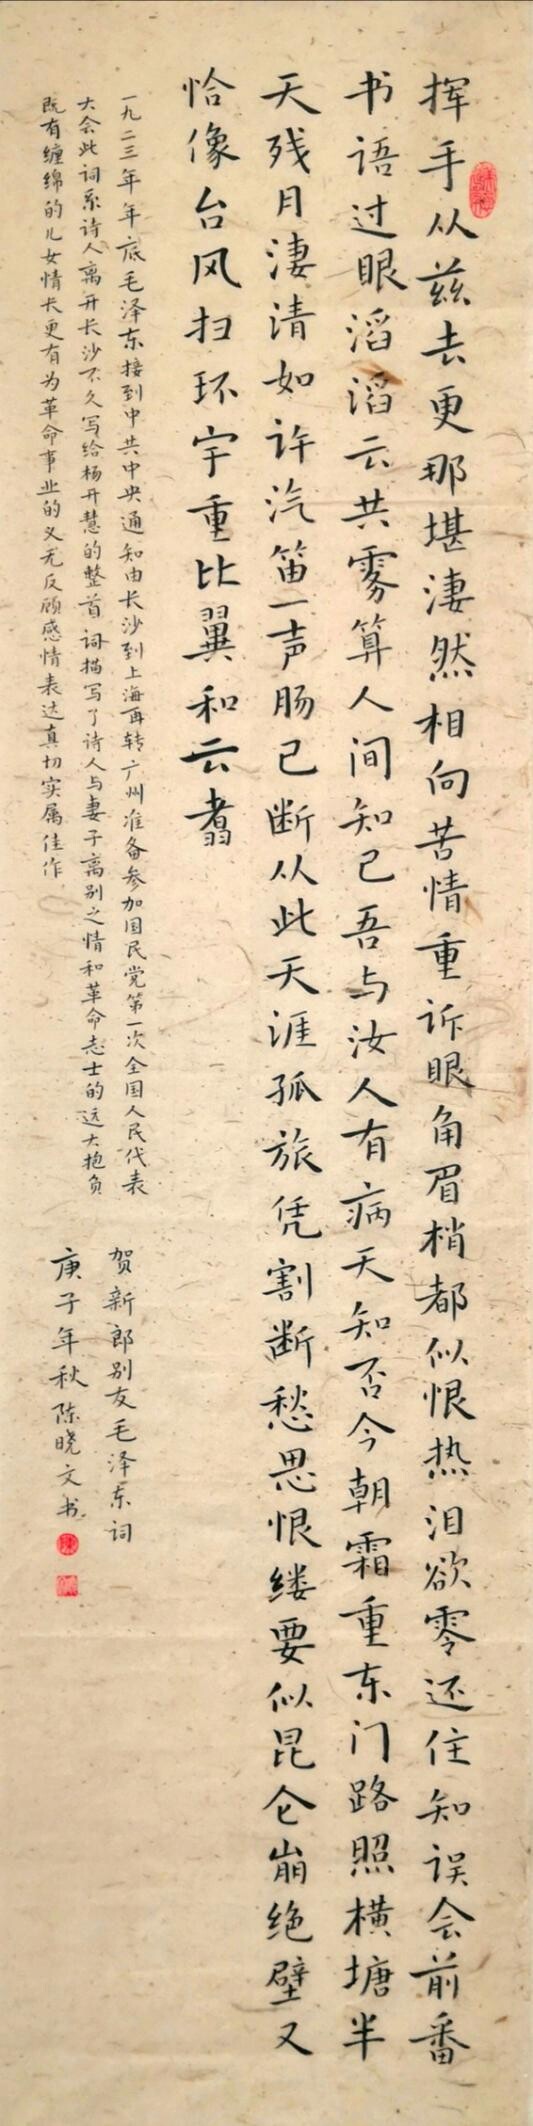 挥手从兹去更那堪凄然相向苦情重诉眼角眉梢都似恨热泪欲零还住知误会前番
书语过眼滔滔云共雾算人间知己吾与汝人有病天知否今朝霜重东门路照横塘半
天残月凄清如许汽笛一声肠已断从此天涯孤旅凭割断愁思恨缕要似昆仑崩绝壁又
恰像台风扫环宇重比翼和云翥
一九二三年年底毛泽东接到中共中央通知由长沙到上海再转广州准备参加国民党第一次全国人民代表
大会此词系诗人离开长沙不久写给杨开慧的整首词描写了诗人与妻子离别之情和革命志士的远大抱负
既有缠绵的儿女情长更有为革命事业的义无反顾感情表达真切实属佳作
贺新郎别友毛泽东词
庚子年秋陈晓文书